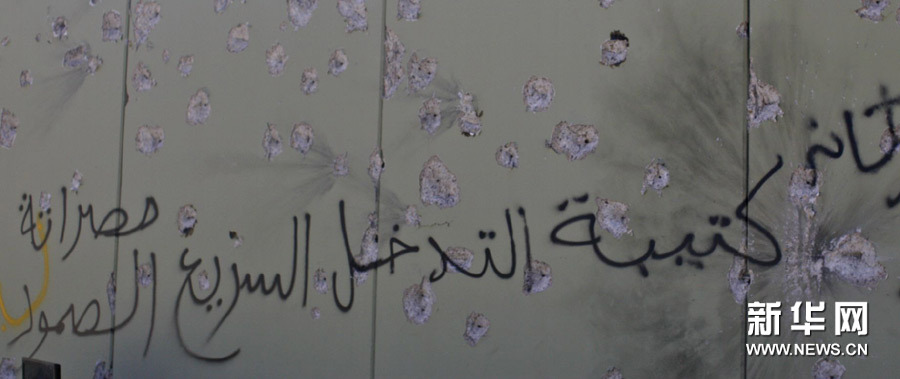 كتيبة التدخل السريع
مصراتة
الصمود
新华网
WWW.NEWS.CN